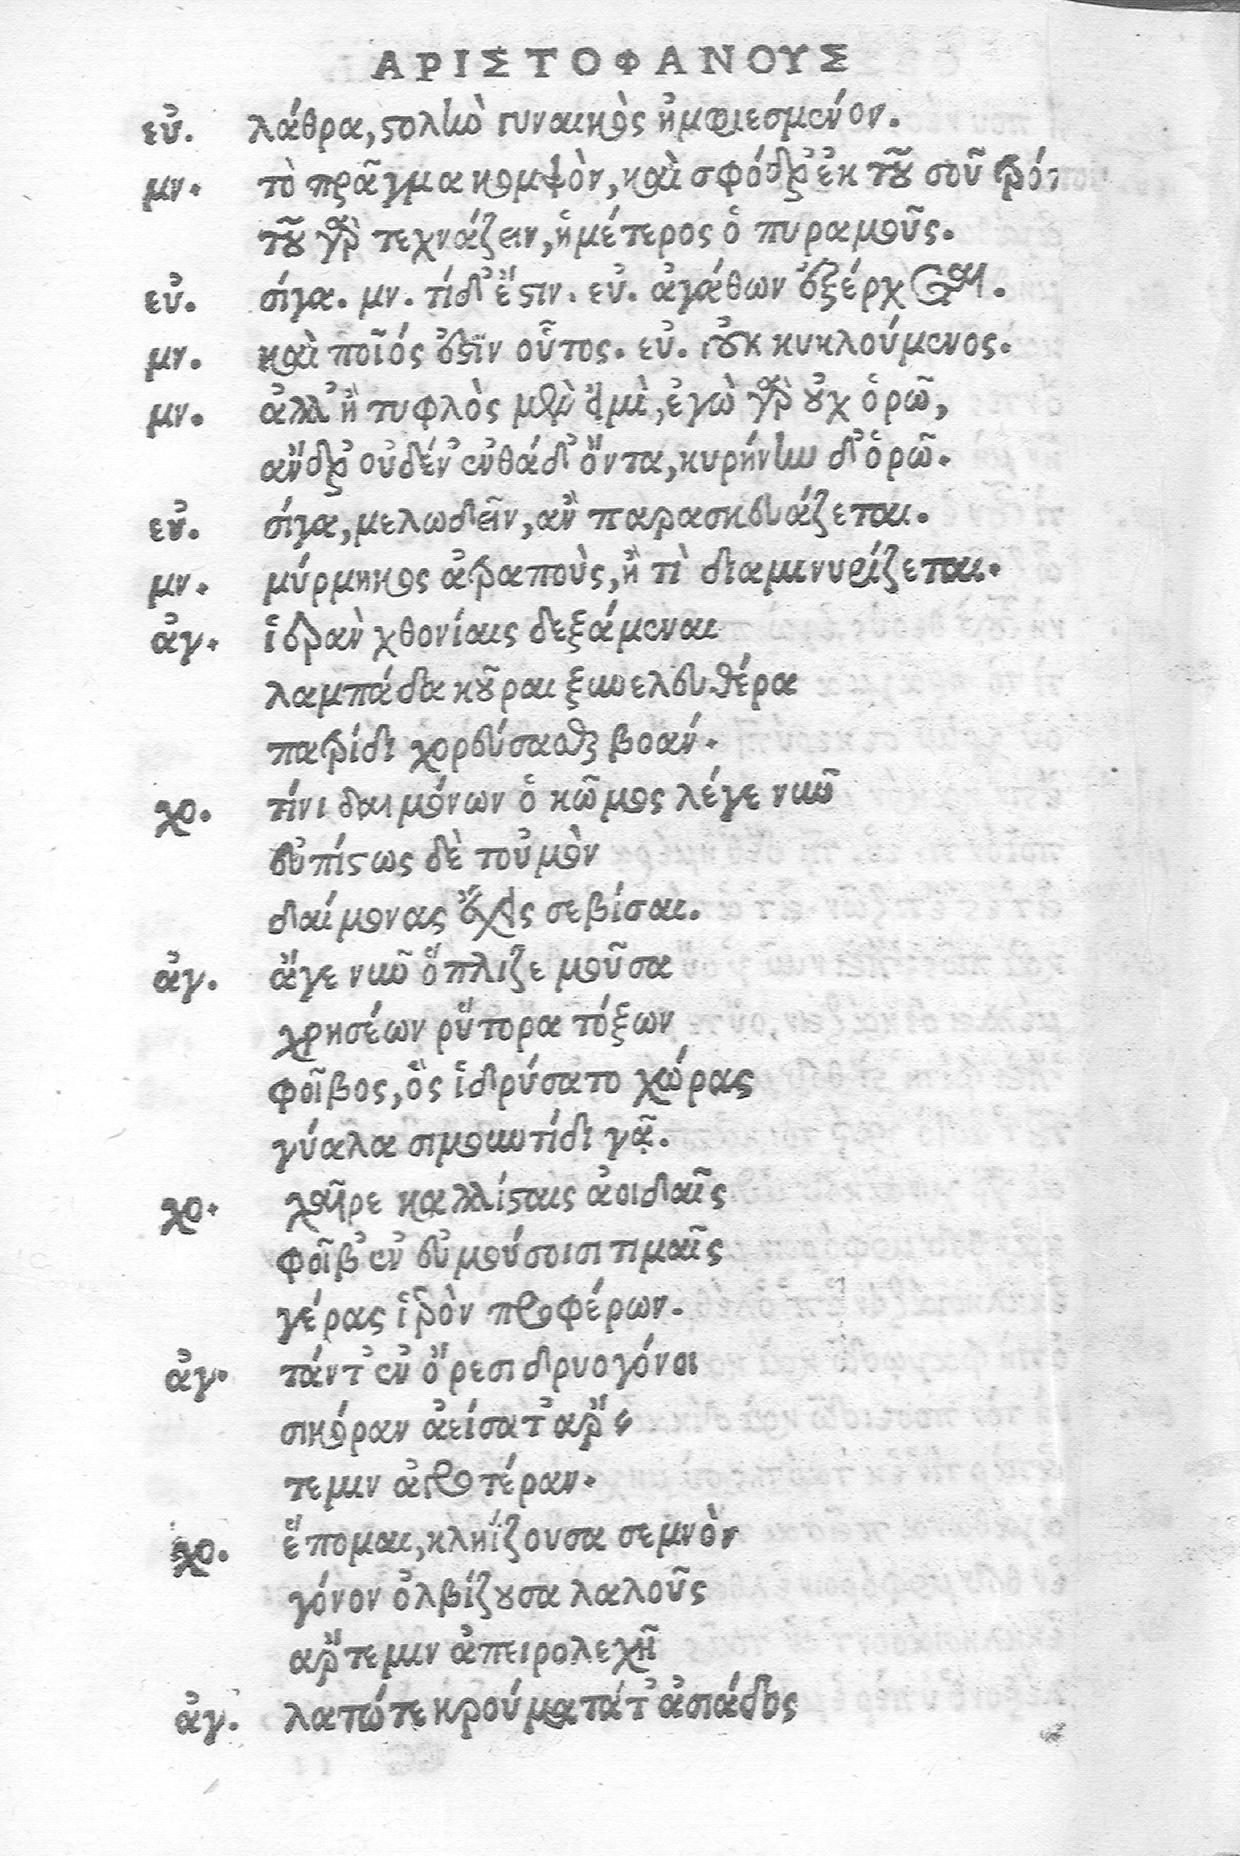 ΑΡΙΣΤΟΦΑΝΟΥΣ
ευ. λάθρα, στολὴν γυναικὸς ἠμφιεσμένον.
μν. τὸ πρᾶγμα κομψὸν, καὶ σφόδρ' ἐκ τοῦ σοῦ
τοῦ γὰρ τεχνάζειν, ἡμέτερος ὁ πυραμοῦς.
εὐ. σίγα. μν. τί δ' ἔστιν. εὐ. ἀγάθων ἐξέρχεται.
μν. καὶ ποῖός ἐστιν οὗτος. εὐ. οὑκκυκλούμενος.
μν. ἀλλ' ἢ τυφλὸς μὲν εἰμὶ, ἐγὼ γὰρ οὐχ ὁρῶ,
ἄνδρ' οὐδέν' ἐνθάδ' ὄντα, κυρήνην δ' ὁρῶ.
εὐ. σίγα, μελωδεῖν, αὖ παρασκευάζεται.
μν. μύρμηκος ἀτραποὺς, ἢ τὶ διαμινυρίζεται.
ἀγ. ἱερὰν χθονίαις δεξάμεναι
λαμπάδα κοῦραι ξὺν ἐλευθέρα
πατρίδι χορεύσασθε βοάν.
χο. τίνι δαιμόνων ὁ κῶμος λέγε νιῦ
εὐπίστως δὲ τοὐμὸν
δαίμονας ἔχει σεβίσαι.
ἀγ. ἄγε νιῦ ὅπλιζε μοῦσα
χρησέων ῥύτορα τόξων
φοῖβος, ὃς ἱδρύσατο χώρας
γύαλα σιμουντίδι γᾷ.
χο. χαῖρε καλλίσταις ἀοιδαῖς
φοῖβ' ἐν εὐμούσοισι τιμαῖς
γέρας ἱερὸν προφέρων.
ἀγ. τάντ' ἐν ὄρεσι δρυογόνοι
σικόραν ἀείσατ' ἄρ
τεμιν ἀγροτέραν.
χο. ἕπομαι, κληΐζουσα σεμνὸν
γόνον ὀλβίζουσα λαλοῦς
ἄρτεμιν ἀπειρολεχῆ
ἀγ. λατώ τε κρούματά τ' ἀσιάδος